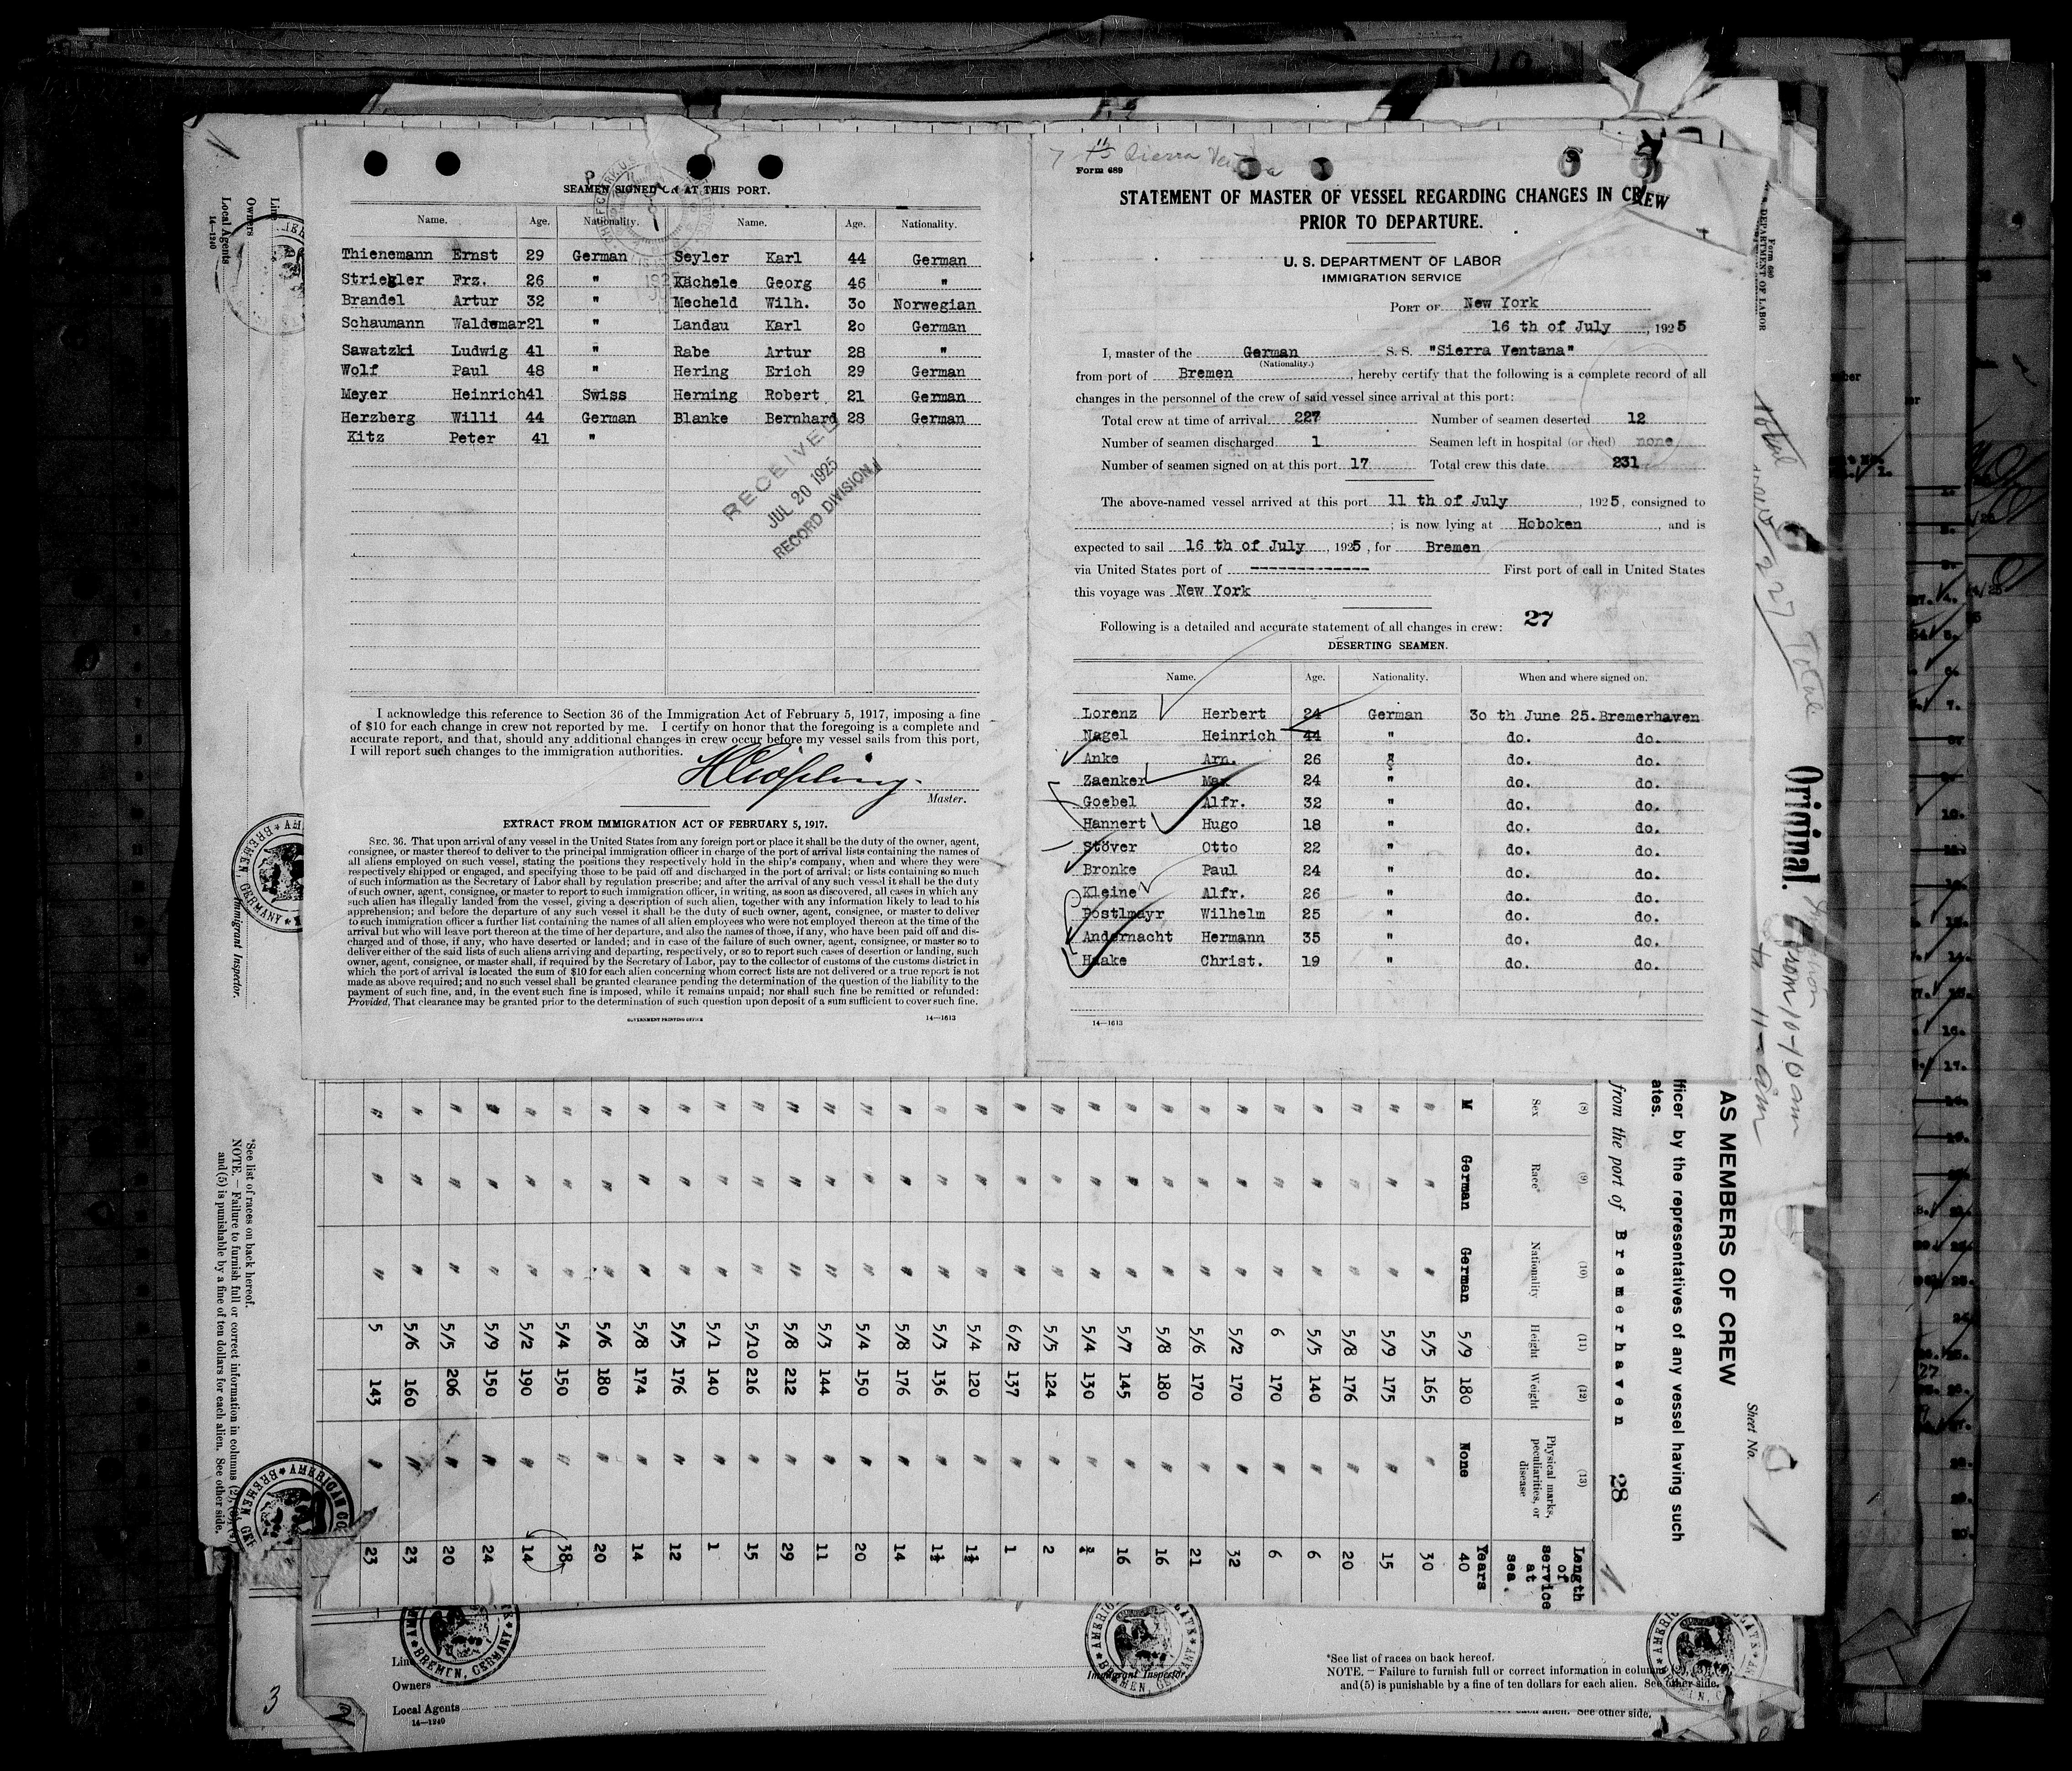 SEAMEN SIGNED ON AT THIS PORT.
Name. Age. Nationality. Name. Age. Nationality.
Thienemann Ernst 29 German Seyler Karl 44 German
Striegler Frz. 26 " Kächele Georg 46 "
Brandel Artur 32 " Mecheld Wilh. 3o Norwegian
Schaumann Waldemar 21 " Landau Karl 2o German
Sawatzki Ludwig 41 " Rabe Artur 28 "
Wolf Paul 48 " Hering Erich 29 German
Meyer Heinrich 41 Swiss Herning Robert 21 German
Herzberg Willi 44 German Blanke Bernhard 28 German
Kitz Peter 41 "
RECEIVED
JUL 20 1925
RECORD DIVISION
I acknowledge this reference to Section 36 of the Immigration Act of February 5, 1917, imposing a fine
of $10 for each change in crew not reported by me. I certify on honor that the foregoing is a complete and
accurate report, and that, should any additional changes in crew occur before my vessel sails from this port,
I will report such changes to the immigration authorities.
Master.
EXTRACT FROM IMMIGRATION ACT OF FEBRUARY 5, 1917.
SEC. 36. That upon arrival of any vessel in the United States from any foreign port or place it shall be the duty of the owner, agent,
consignee, or master thereof to deliver to the principal immigration officer in charge of the port of arrival lists containing the names of
all aliens employed on such vessel, stating the positions they respectively hold in the ship's company, when and where they were
respectively shipped or engaged, and specifying those to be paid off and discharged in the port of arrival; or lists containing so much
of such information as the Secretary of Labor shall by regulation prescribe; and after the arrival of any such vessel it shall be the duty
of such owner, agent, consignee, or master to report to such immigration officer, in writing, as soon as discovered, all cases in which any
such alien has illegally landed from the vessel, giving a description of such alien, together with any information likely to lead to his
apprehension; and before the departure of any such vessel it shall be the duty of such owner, agent, consignee, or master to deliver
to such immigration officer a further list containing the names of all alien employees who were not employed thereon at the time of the
arrival but who will leave port thereon at the time of her departure, and also the names of those, if any, who have been paid off and dis-
charged and of those, if any, who have deserted or landed; and in case of the failure of such owner, agent, consignee, or master so to
deliver either of the said lists of such aliens arriving and departing, respectively, or so to report such cases of desertion or landing, such
owner, agent, consignee, or master shall, if required by the Secretary of Labor, pay to the collector of customs of the customs district in
which the port of arrival is located the sum of $10 for each alien concerning whom correct lists are not delivered or a true report is not
made as above required; and no such vessel shall be granted clearance pending the determination of the question of the liability to the
payment of such fine, and, in the event such fine is imposed, while it remains unpaid; nor shall such fine be remitted or refunded:
Provided, That clearance may be granted prior to the determination of such question upon deposit of a sum sufficient to cover such fine.
GOVERNMENT PRINTING OFFICE 14—1613
Form 689
STATEMENT OF MASTER OF VESSEL REGARDING CHANGES IN CREW
PRIOR TO DEPARTURE.
U. S. DEPARTMENT OF LABOR
IMMIGRATION SERVICE
PORT OF New York
16 th of July, 1925
I, master of the German S. S. "Sierra Ventana"
(Nationality.)
from port of Bremen, hereby certify that the following is a complete record of all
changes in the personnel of the crew of said vessel since arrival at this port:
Total crew at time of arrival 227 Number of seamen deserted 12
Number of seamen discharged 1 Seamen left in hospital (or died) none
Number of seamen signed on at this port 17 Total crew this date 231
The above-named vessel arrived at this port 11 th of July, 1925, consigned to
; is now lying at Hoboken, and is
expected to sail 16 th of July, 1925, for Bremen
via United States port of ------------- First port of call in United States
this voyage was New York
Following is a detailed and accurate statement of all changes in crew: 27
DESERTING SEAMEN.
Name. Age. Nationality. When and where signed on.
Lorenz Herbert 24 German 3o th June 25. Bremerhaven
Nagel Heinrich 44 " do. do.
Anke Arn. 26 " do. do.
Zaenker Max 24 " do. do.
Goebel Alfr. 32 " do. do.
Hannert Hugo 18 " do. do.
Stöver Otto 22 " do. do.
Bronke Paul 24 " do. do.
Kleine Alfr. 26 " do. do.
Postlmayr Wilhelm 25 " do. do.
Andernacht Hermann 35 " do. do.
Haake Christ. 19 " do. do.
14—1613
Original.
Sheet No. 1
AS MEMBERS OF CREW
fficer by the representatives of any vessel having such
ates.
from the port of Bremerhaven 28
(8) (9) (10) (11) (12) (13)
Sex Race* Nationality Height Weight Physical marks, peculiarities, or disease Length of service at sea.
Years
M German German 5/9 180 None 40
" " " 5/5 165 " 30
" " " 5/9 175 " 15
" " " 5/8 176 " 20
" " " 5/5 140 " 6
" " " 6 170 " 6
" " " 5/2 170 " 32
" " " 5/6 170 " 21
" " " 5/8 180 " 16
" " " 5/7 145 " 16
" " " 5/4 130 "
" " " 5/5 124 " 2
" " " 6/2 137 " 1
" " " 5/4 120 " 1½
" " " 5/3 136 " 1½
" " " 5/8 176 " 14
" " " 5/4 150 " 20
" " " 5/3 144 " 11
" " " 5/8 212 " 29
" " " 5/10 216 " 15
" " " 5/1 140 " 1
" " " 5/5 176 " 12
" " " 5/8 174 " 14
" " " 5/6 180 " 20
" " " 5/4 150 " 38
" " " 5/2 190 " 14
" " " 5/9 150 " 24
" " " 5/5 206 " 20
" " " 5/6 160 " 23
" " " 5 143 " 23
Line
Owners
Local Agents
14—1240
Immigrant Inspector.
*See list of races on back hereof.
NOTE. — Failure to furnish full or correct information in columns (2),
and (5) is punishable by a fine of ten dollars for each alien. See other side.
BREMEN, GERMANY
Line
Owners
Local Agents
14—1240
Immigrant Inspector.
*See list of races on back hereof.
NOTE. — Failure to furnish full or correct information in columns
and (5) is punishable by a fine of ten dollars for each alien. See other side.
See other side.
3
2